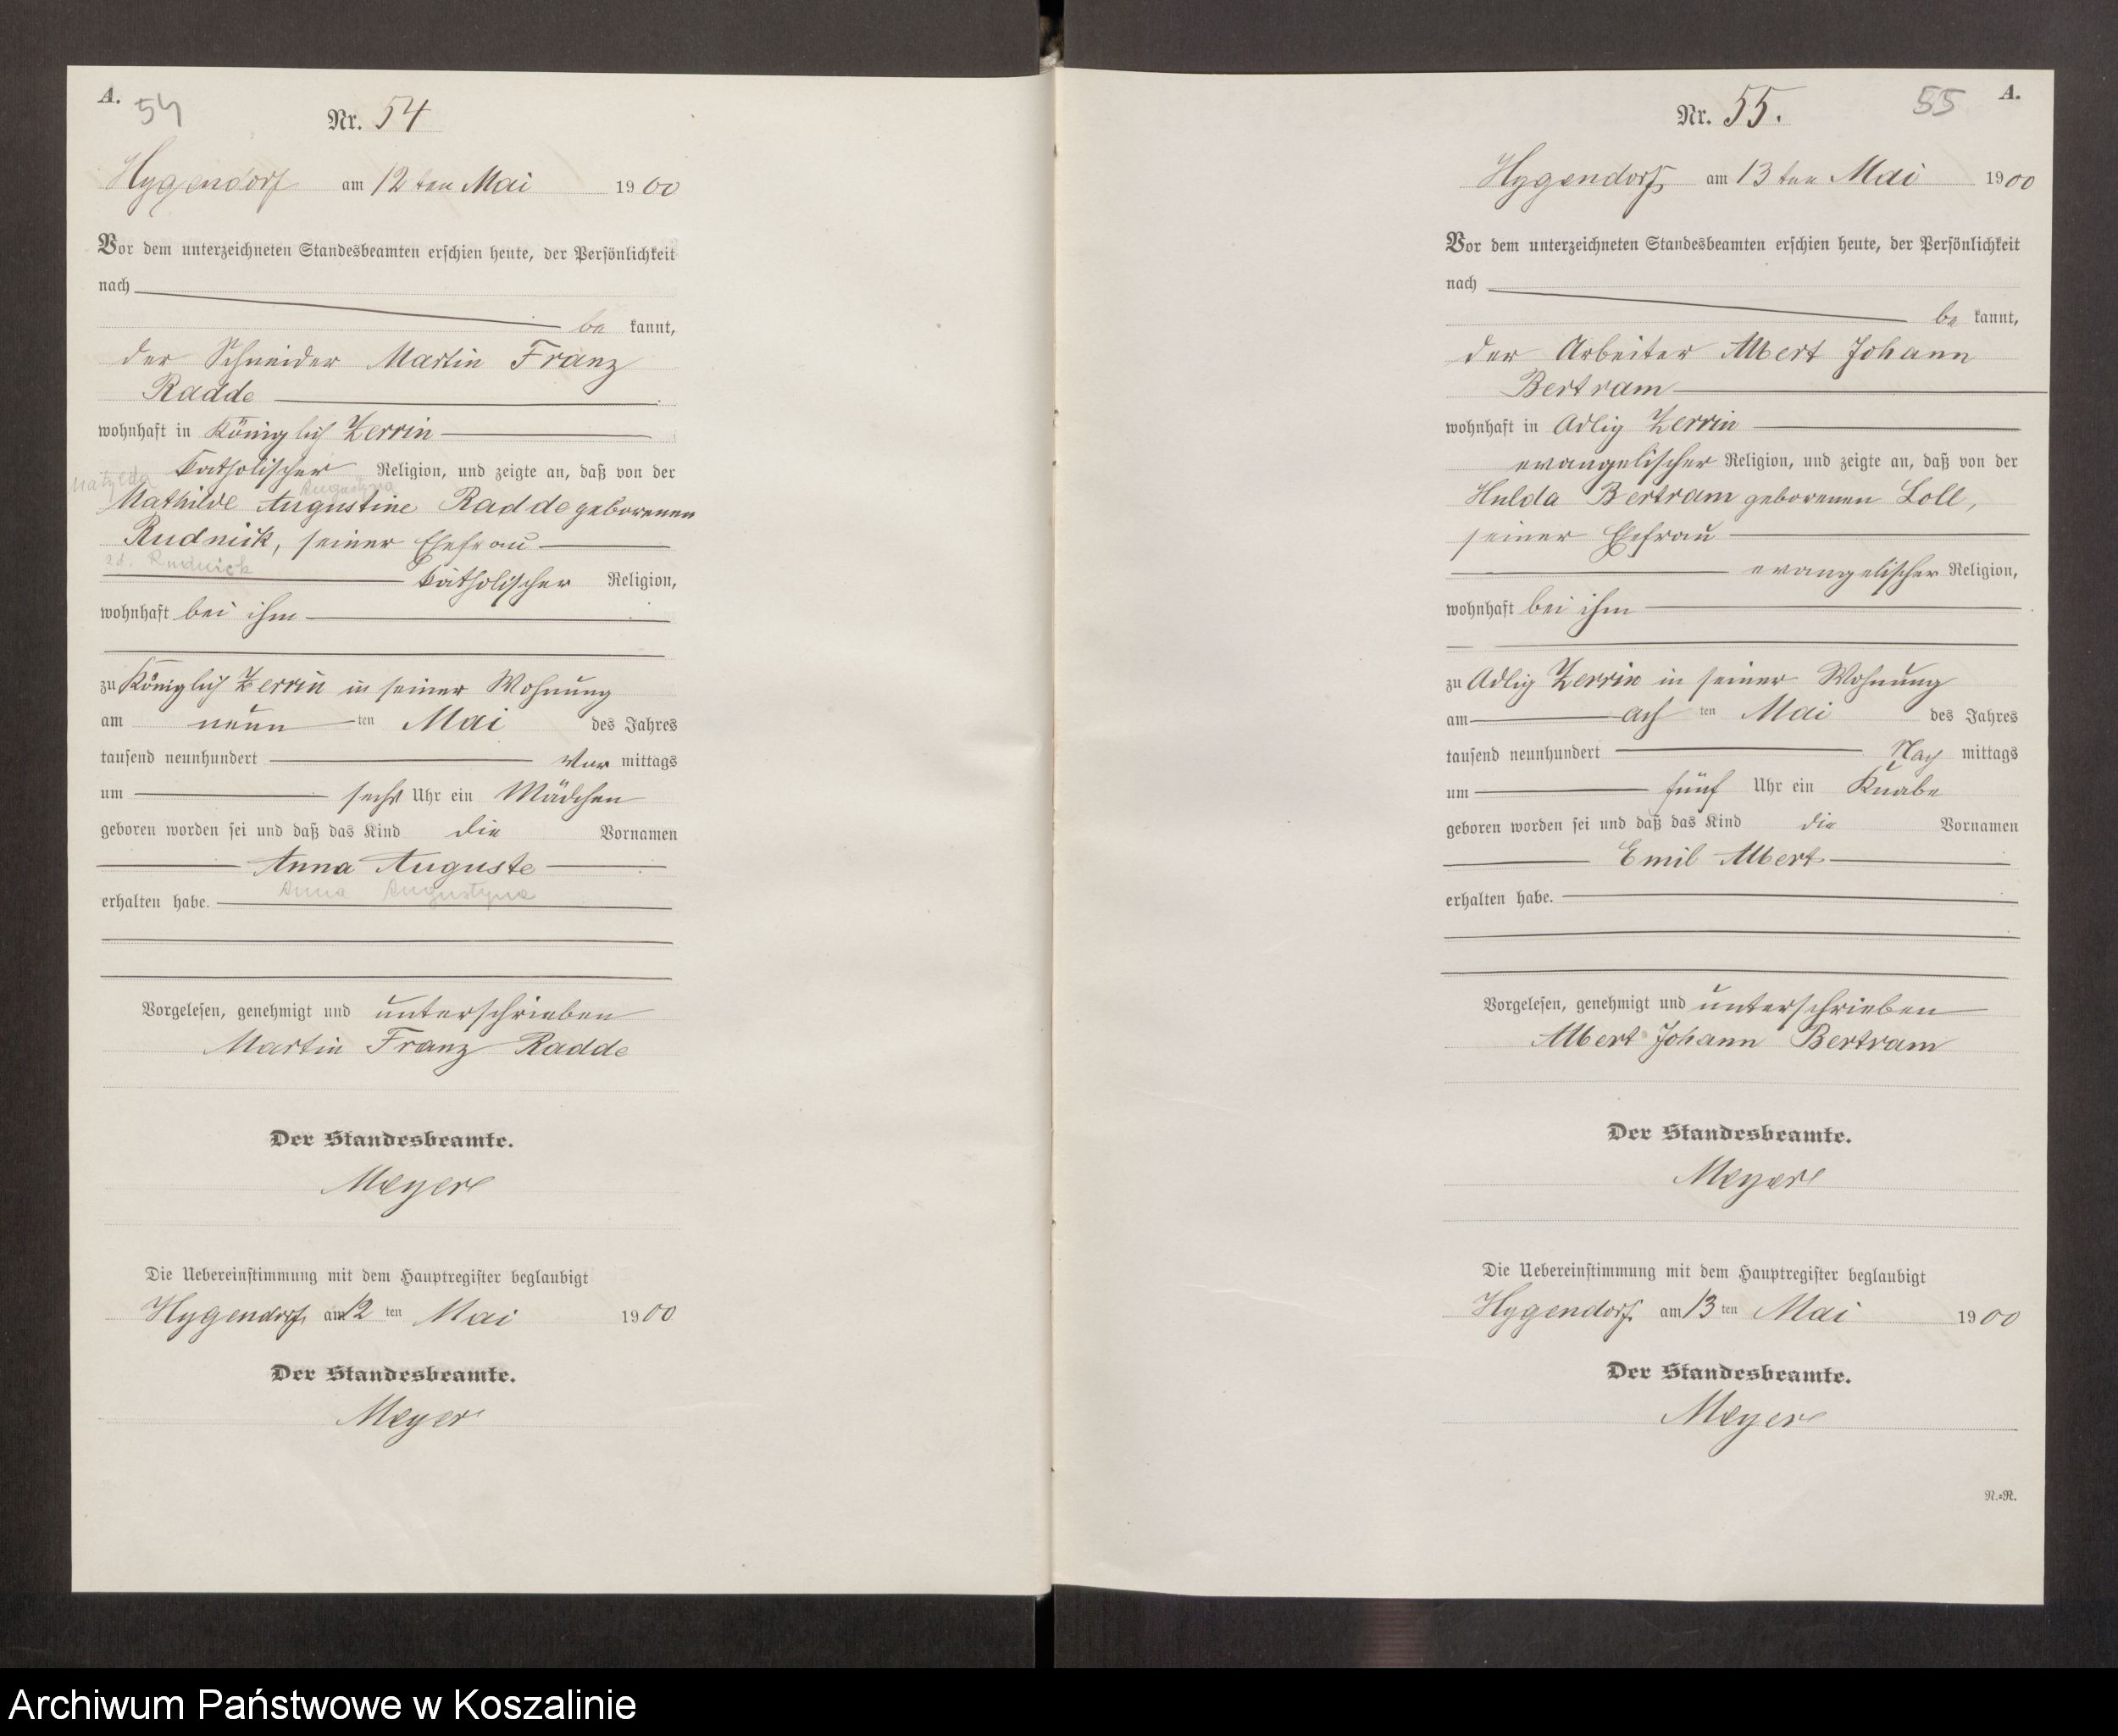 A.
54
Nr. 54
Hygendorf am 12ten Mai 1900
Vor dem unterzeichneten Standesbeamten erschien heute, der Persönlichkeit
nach
be kannt,
der Schneider Martin Franz
Radde
wohnhaft in Königlich Zerrin
katholischer Religion, und zeigte an, daß von der
Matylda Augustyna
Mathilde Augustine Radde geborenen
Rudnick, seiner Ehefrau
zd. Rudnick
katholischer Religion,
wohnhaft bei ihm
zu Königlich Zerrin in seiner Wohnung
am neun ten Mai des Jahres
tausend neunhundert Vor mittags
um sechs Uhr ein Mädchen
geboren worden sei und daß das Kind die Vornamen
Anna Auguste
Anna Augustyna
erhalten habe.
Vorgelesen, genehmigt und unterschrieben
Martin Franz Radde
Der Standesbeamte.
Meyer
Die Uebereinstimmung mit dem Hauptregister beglaubigt
Hygendorf, am 12 ten Mai 1900
Der Standesbeamte.
Meyer
55
A.
Nr. 55.
Hygendorf, am 13ten Mai 1900
Vor dem unterzeichneten Standesbeamten erschien heute, der Persönlichkeit
nach
be kannt,
der Arbeiter Albert Johann
Bertram
wohnhaft in Adlig Zerrin
evangelischer Religion, und zeigte an, daß von der
Hulda Bertram geborenen Loll,
seiner Ehefrau
evangelischer Religion,
wohnhaft bei ihm
zu Adlig Zerrin in seiner Wohnung
am ach ten Mai des Jahres
tausend neunhundert Nach mittags
um fünf Uhr ein Knabe
geboren worden sei und daß das Kind die Vornamen
Emil Albert
erhalten habe.
Vorgelesen, genehmigt und unterschrieben
Albert Johann Bertram
Der Standesbeamte.
Meyer
Die Uebereinstimmung mit dem Hauptregister beglaubigt
Hygendorf am 13 ten Mai 1900
Der Standesbeamte.
Meyer
N.=N.
Archiwum Państwowe w Koszalinie